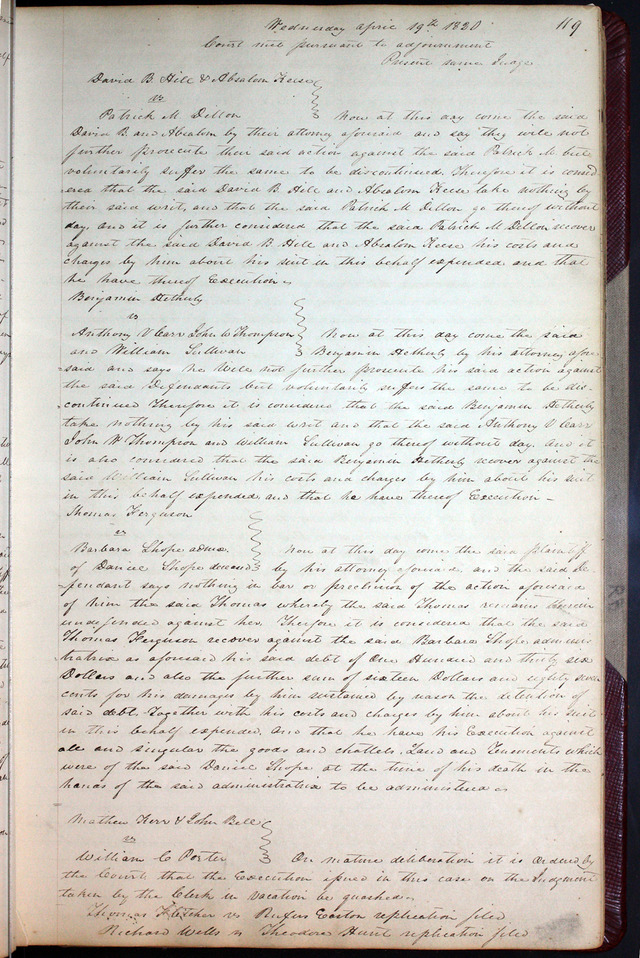 Wednesday april 19th 1820 119
Court met pursuant to adjournment
Present same Judge
David B Hill & Absalom Keese
vs
Patrick M Dillon Now at this day come the said
David B. and Absalom by their attorney aforesaid and say they will not
further prosecute their said action against the said Patrick M. but
voluntarily suffer the same to be discontinued. Therefore it is consid
ered that the said David B Hill and Absalom Keese take nothing by
their said writ, and that the said Patrick M. Dillon go thereof without
day, and it is further considered that the said Patrick M Dillon recover
against the said David B Hill and Absalom Keese his costs and
charges by him about his suit in this behalf expended and that
he have thereof Execution
Benjamin Hetherly
vs
Anthony V Carr John W Thompson Now at this day come the said
and William Sullivan Benjamin Hetherly by his attorney afore
said and says he will not further prosecute his said action against
the said Defendants but voluntarily suffers the same to be dis-
continued Therefore it is considered that the said Benjamin Hetherly
take nothing by his said writ and that the said Anthony V Carr
John W Thompson and William Sullivan go thereof without day. And it
is also considered that the said Benjamin Hetherly recover against the
said William Sullivan his costs and charges by him about his suit
in this behalf expended and that he have thereof Execution -
Thomas Ferguson
vs
Barbara Shope admx Now at this day come the said plaintiff
of Daniel Shope deceased by his attorney aforesaid, and the said De-
fendant says nothing in bar or preclusion of the action aforesaid
of him the said Thomas whereby the said Thomas remains therein
undefended against her. Therefore it is considered that the said
Thomas Ferguson recover against the said Barbara Shope, adminis
tratrix as aforesaid his said debt of One Hundred and thirty six
Dollars and also the further sum of sixteen Dollars and eighty seven
cents for his damages by him sustained by reason the detention of
said debt. Together with his costs and charges by him about his suit
in this behalf expended. And that he have his Execution against
all and singular the goods and chattels, Land and Tenements which
were of the said Daniel Shope at the time of his death in the
hands of the said administratrix to be administered
Mathew Kerr & John Bell
vs
William C Porter On mature deliberation it is Ordered by
the Court that the Execution issued in this case on the Judgment
taken by the Clerk in vacation be quashed
Thomas Fletcher vs Rufus Easton replication filed
Richard Wells vs Theodore Hunt replication filed